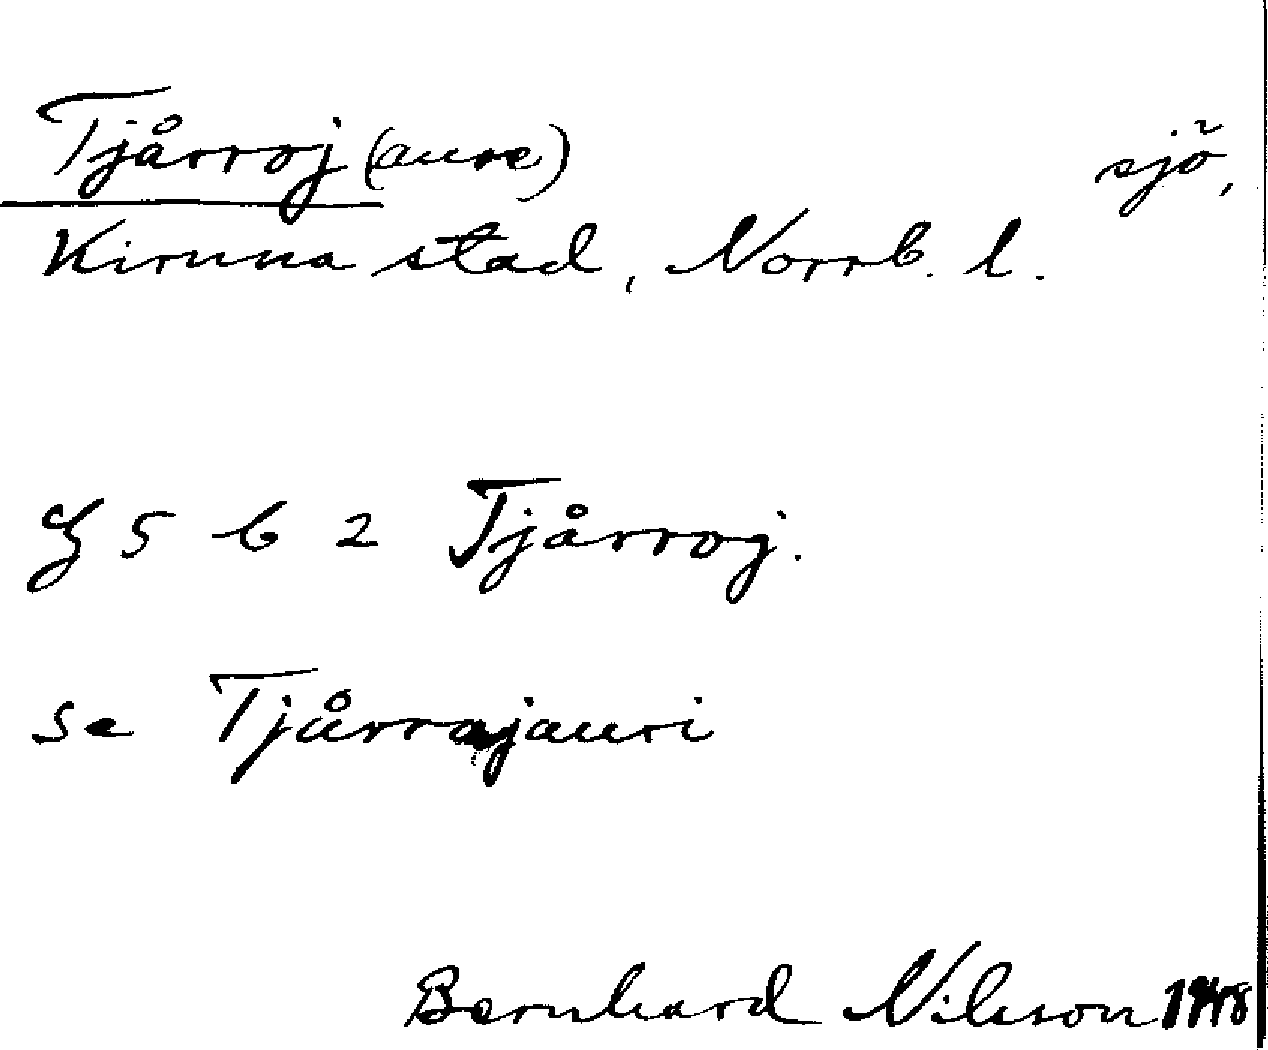 Tjårroj (aure) sjö,
Kiruna stad, Norrb. l.
§ 5 b 2 Tjårroj.
se Tjårrajauri
Bernhard Nilsson 1948